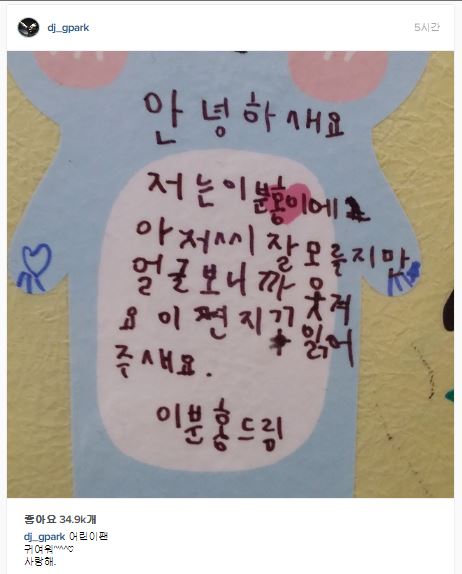 dj_gpark 5시간
안녕하새요
저는 이분홍이에요
아저씨 잘 모를지만
얼굴보니까 웃겨
요 이 편지 읽어
주새요.
이분홍드림
좋아요 34.9k개
dj_gpark 어린이팬
귀여워~^^♡
사랑해.